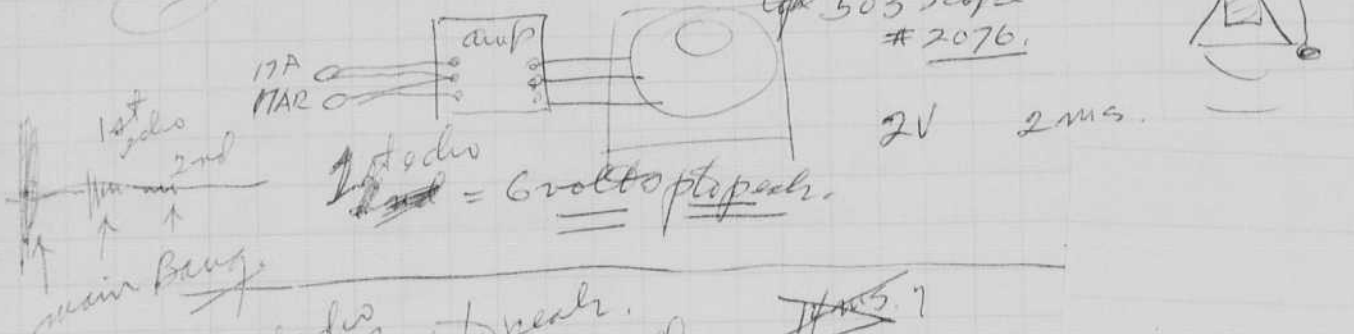 503 scope
# 2076.
amp
MAR
2V 2 ms.
1st echo
2nd
1st echo = 6 volts p to peak.
main Bang.
echo
peak.